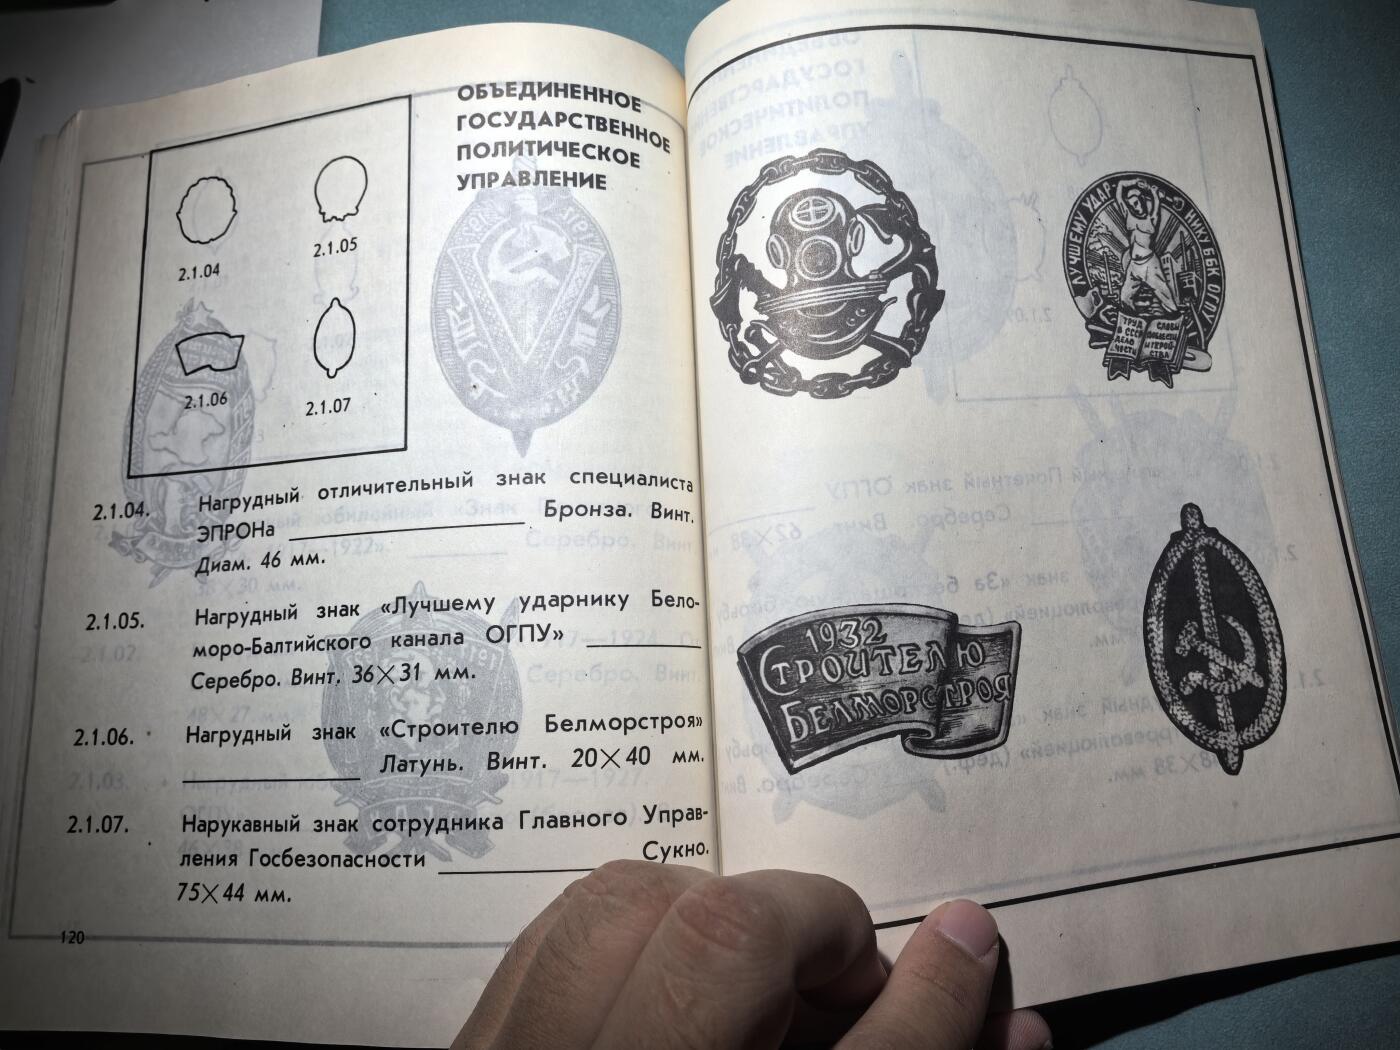 ОБЪЕДИНЕННОЕ
ГОСУДАРСТВЕННОЕ
ПОЛИТИЧЕСКОЕ
УПРАВЛЕНИЕ
2.1.04
2.1.05
2.1.06
2.1.07
2.1.04. Нагрудный отличительный знак специалиста
ЭПРОНа Бронза. Винт.
Диам. 46 мм.
2.1.05. Нагрудный знак «Лучшему ударнику Бело-
моро-Балтийского канала ОГПУ»
Серебро. Винт. 36×31 мм.
2.1.06. Нагрудный знак «Строителю Белморстроя»
Латунь. Винт. 20×40 мм.
2.1.07. Нарукавный знак сотрудника Главного Управ-
ления Госбезопасности Сукно.
75×44 мм.
120
ЛУЧШЕМУ УДАР-НИКУ ББК ОГПУ
ТРУД
В СССР
ДЕЛО
ЧЕСТИ
СЛАВЫ
ДОБЛЕСТИ
И ГЕРОЙ-
СТВА
1932
СТРОИТЕЛЮ
БЕЛМОРСТРОЯ